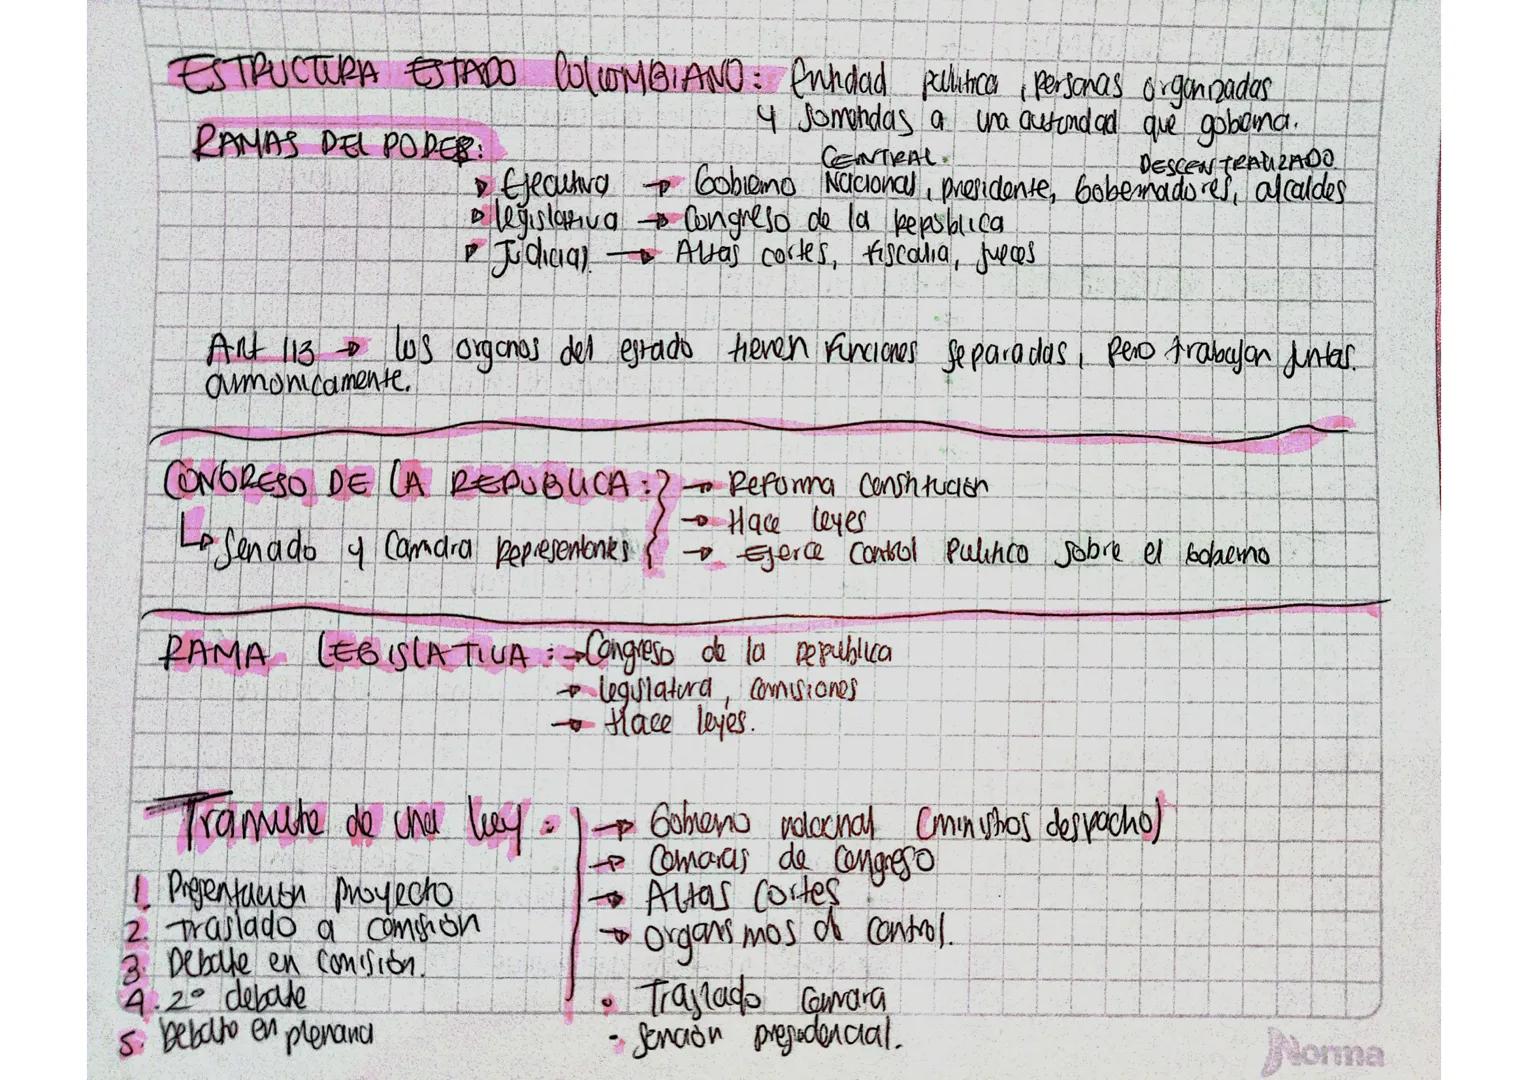 ESTRUCTURA ESTADO COLOMBIANO: Entidad politica, personas organizadas
y somendas a una autoridad que gobierna.
RAMAS DEL PODER:
CENTRAL. DESCENTRALIZADO
Ejecutiva → Gobierno Nacional, presidente, Gobernadores, alcaldes
legislativa → Congreso de la Republica
Judicial → Altas cortes, fiscalia, jueces
Art 113 → los organos del estado tienen funciones separadas, pero trabajan juntas.
armonicamente.
CONGRESO DE LA REPUBLICA: → Reforma Constitucion
→ Hace leyes
↳ Senado y Camara Representantes → Ejerce Control Politico sobre el Gobierno
RAMA LEGISLATIVA: → Congreso de la republica
→ legislatura, comisiones
→ Hace leyes.
Tramite de una ley: → Gobierno nacional (ministros despacho)
→ Camaras de Congreso
→ Altas Cortes
1. Presentación proyecto
2. Traslado a comisión → organismos de Control.
3. Debate en Comisión.
4. 2° debate • Traslado Camara
5. Debate en plenaria - Sanción presidencial.
Norma